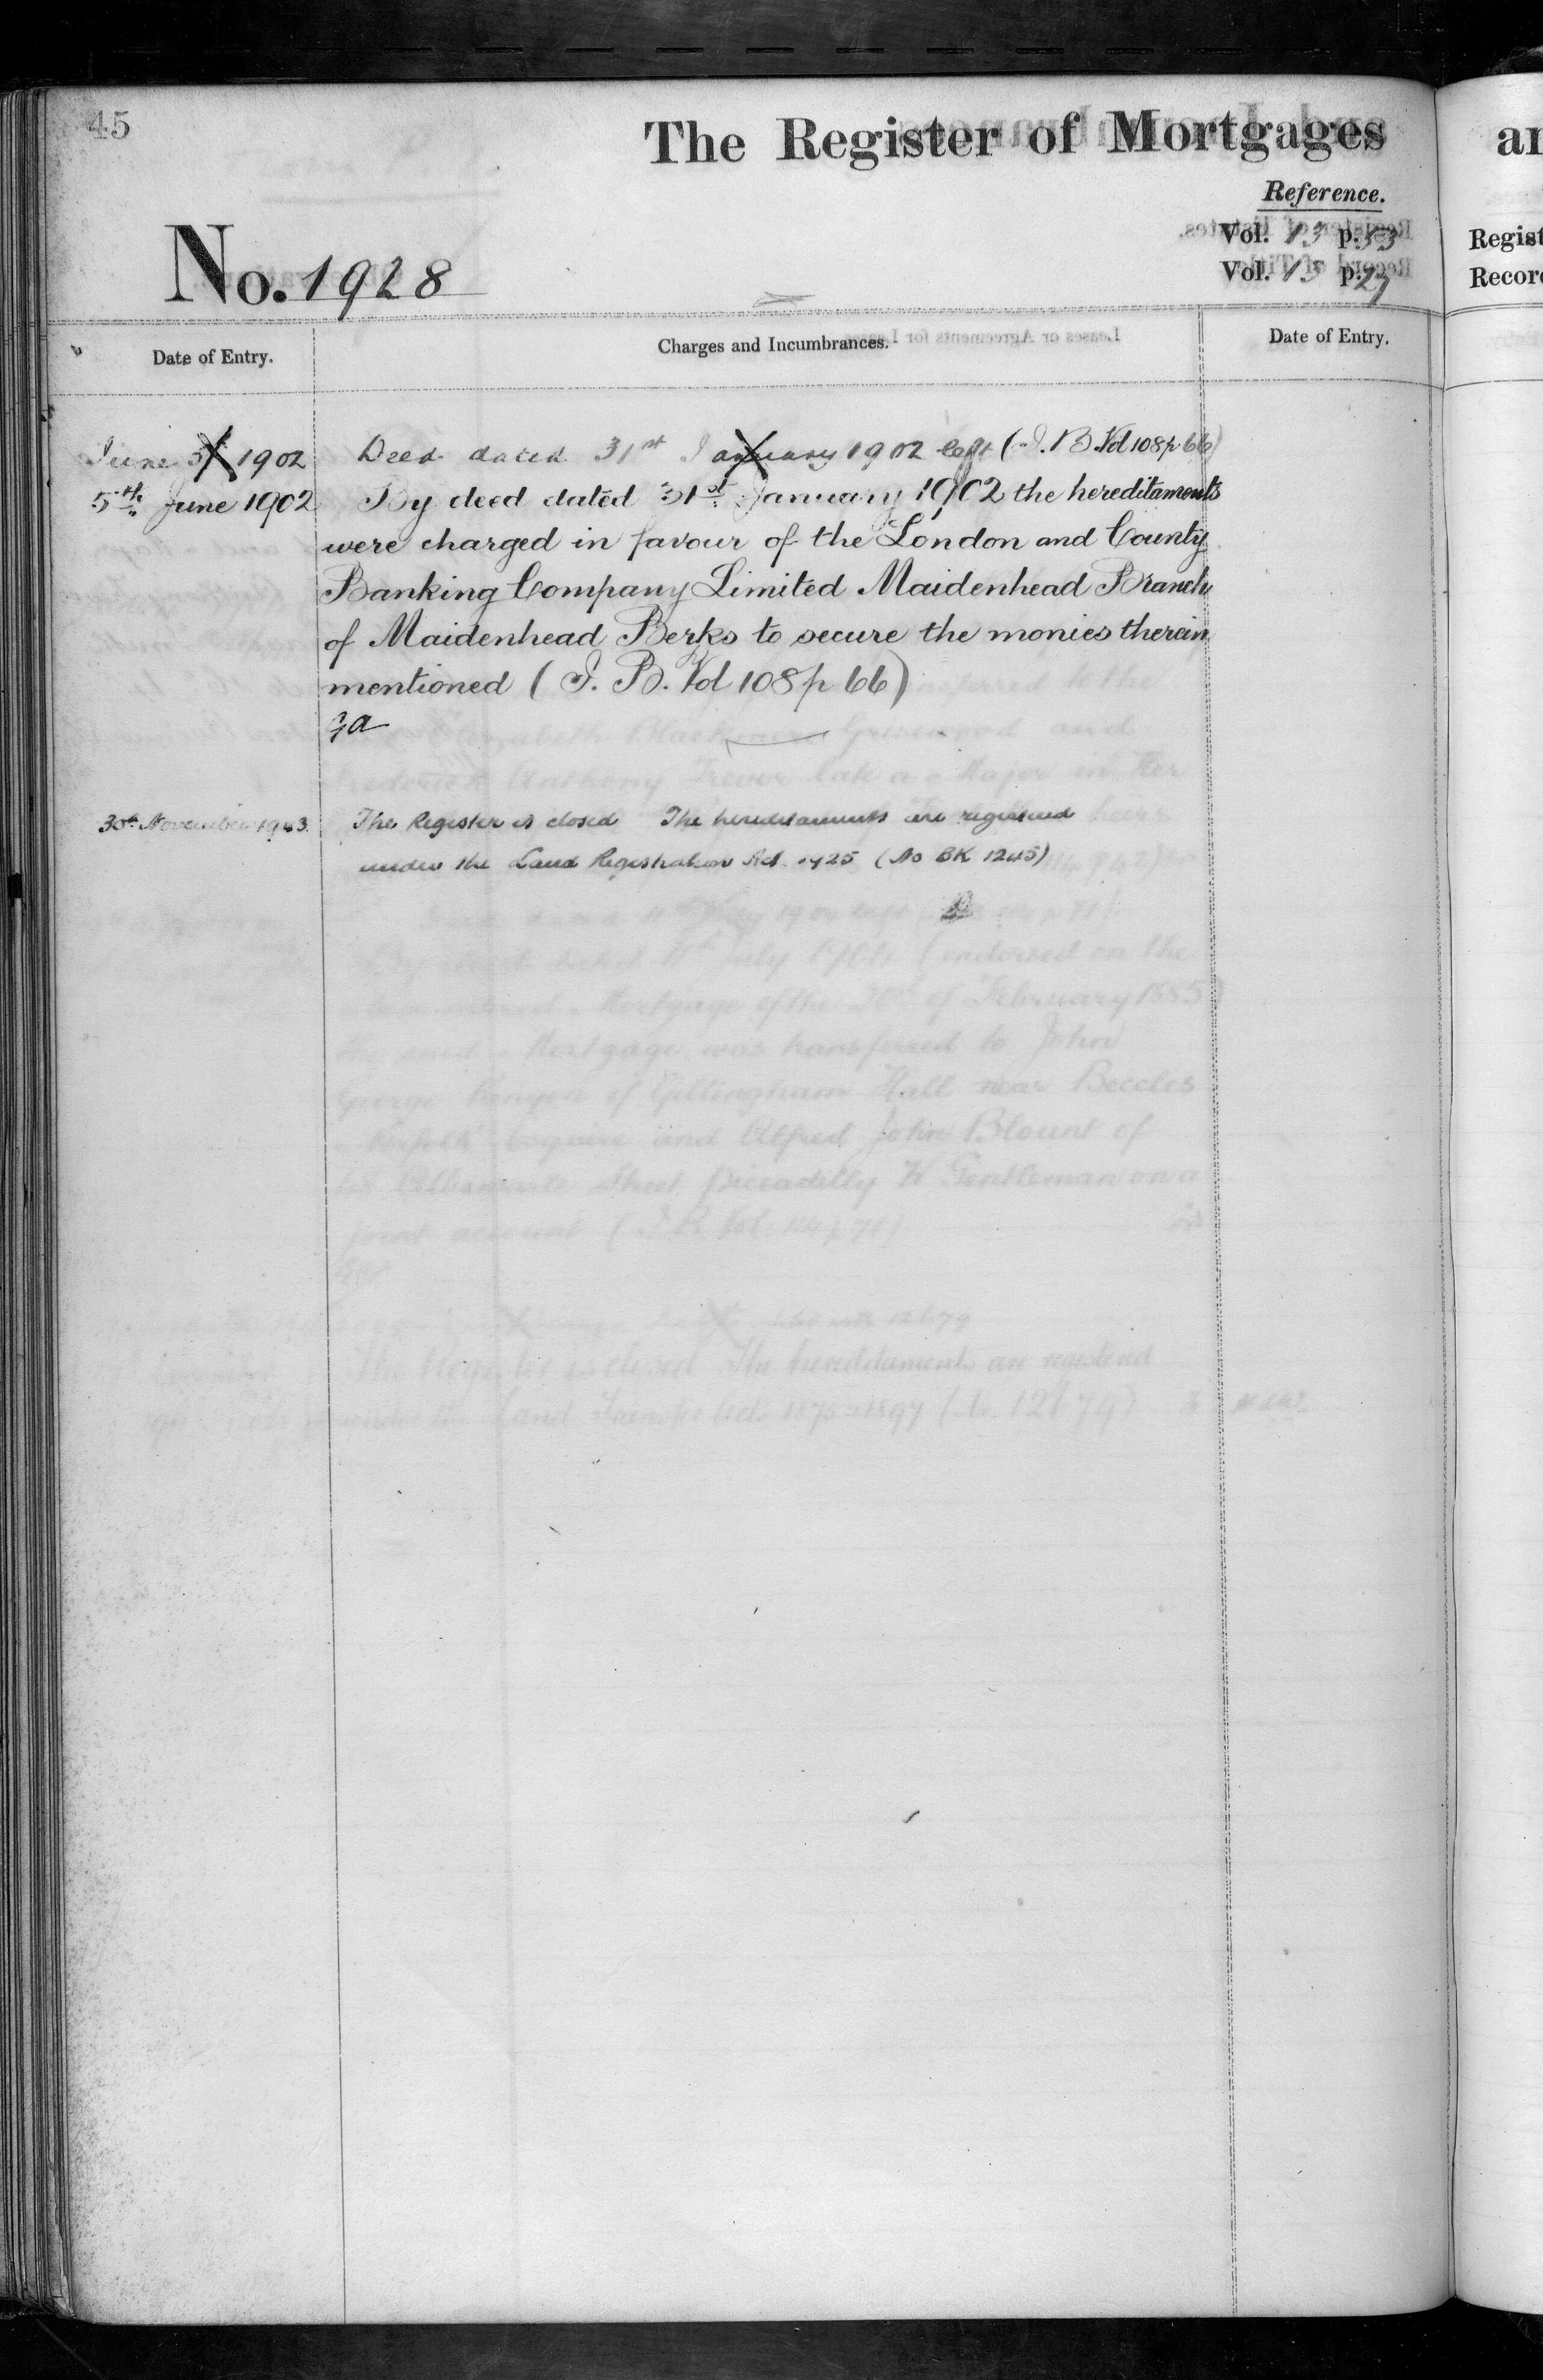 45
The Register of Mortgages
Reference.
Vol. 13 p. 53
Vol. 13 p.
No. 1928
Date of Entry.
Charges and Incumbrances.
Date of Entry.
June 5 1902 Deed dated 31st January 1902 left (I.B. Vol 108 p 66)
5th June 1902 By deed dated 31st January 1902 the hereditaments
were charged in favour of the London and County
Banking Company Limited Maidenhead Branch
of Maidenhead Berks to secure the monies therein
mentioned (I. B. Vol 108 p 66)
Ga
30th November 1943. The Register is closed The hereditaments are registered
under the Land Registration Act 1925 (No BK 1245)
ar
Regist
Record